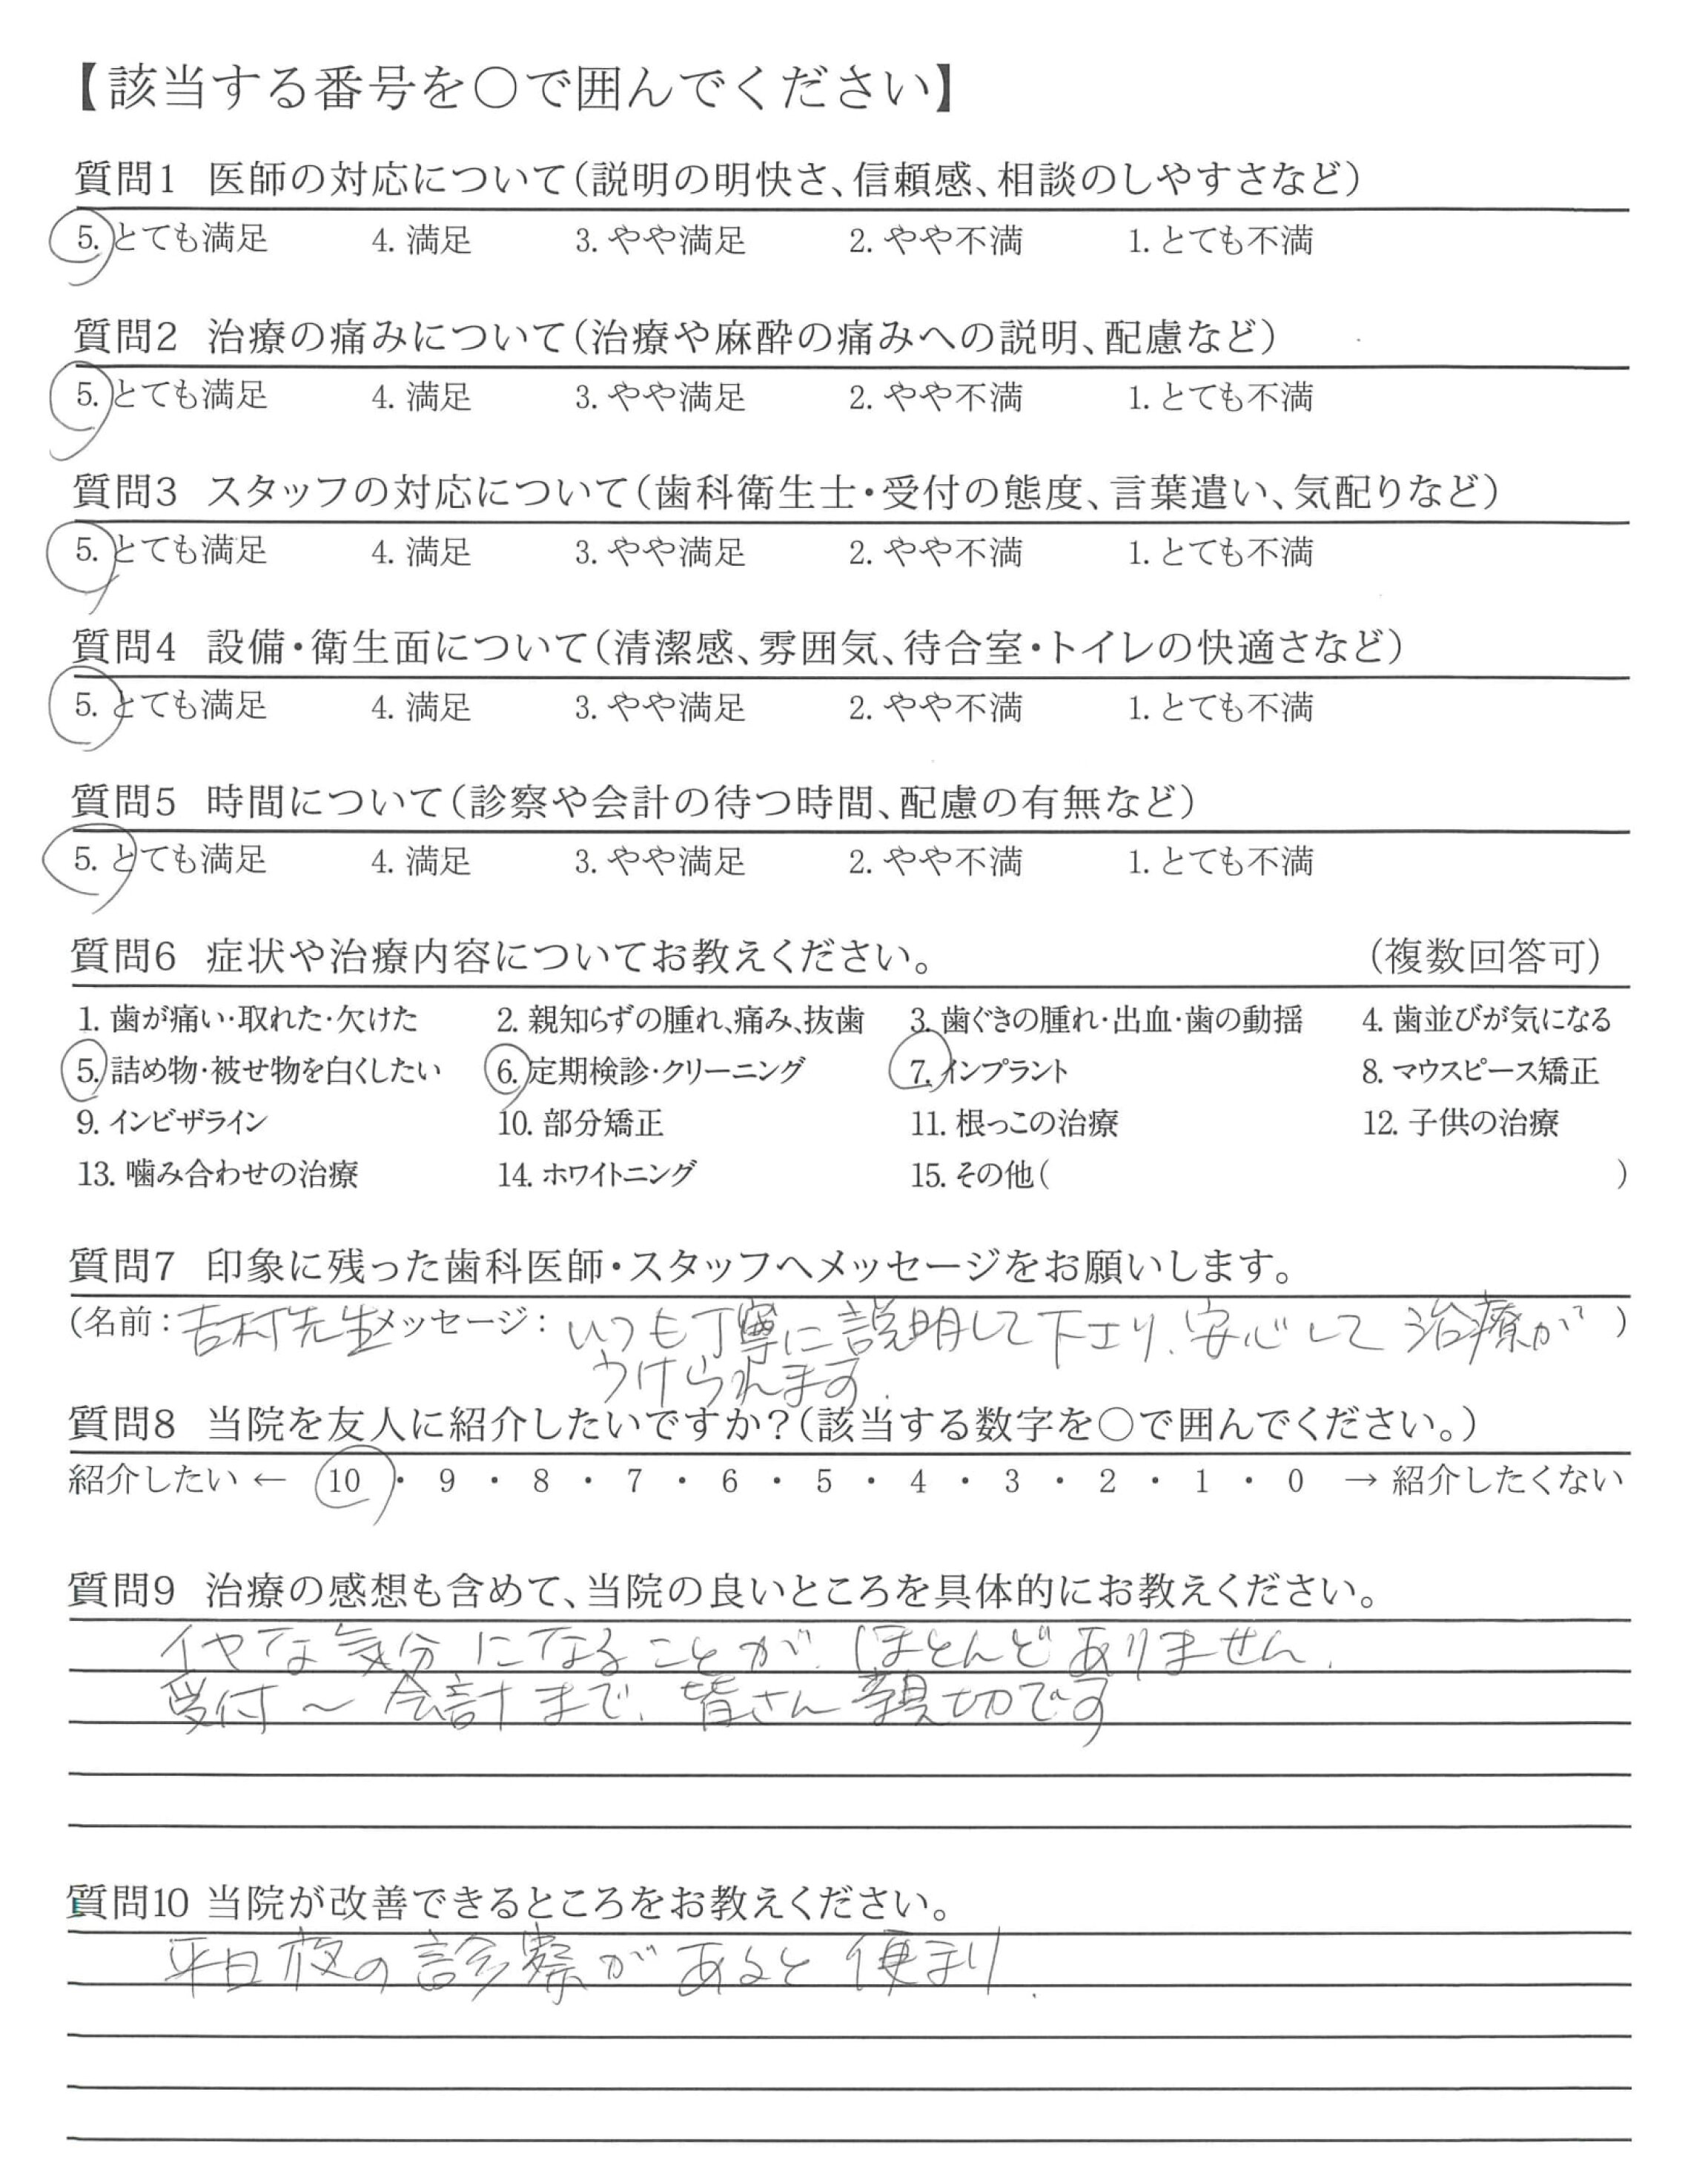 【該当する番号を○で囲んでください】
質問1 医師の対応について(説明の明快さ、信頼感、相談のしやすさなど)
5. とても満足 4. 満足 3. やや満足 2. やや不満 1. とても不満
質問2 治療の痛みについて(治療や麻酔の痛みへの説明、配慮など)
5. とても満足 4. 満足 3. やや満足 2. やや不満 1. とても不満
質問3 スタッフの対応について(歯科衛生士・受付の態度、言葉遣い、気配りなど)
5. とても満足 4. 満足 3. やや満足 2. やや不満 1. とても不満
質問4 設備・衛生面について(清潔感、雰囲気、待合室・トイレの快適さなど)
5. とても満足 4. 満足 3. やや満足 2. やや不満 1. とても不満
質問5 時間について(診察や会計の待つ時間、配慮の有無など)
5. とても満足 4. 満足 3. やや満足 2. やや不満 1. とても不満
質問6 症状や治療内容についてお教えください。 (複数回答可)
1. 歯が痛い・取れた・欠けた 2. 親知らずの腫れ、痛み、抜歯 3. 歯ぐきの腫れ・出血・歯の動揺 4. 歯並びが気になる
5. 詰め物・被せ物を白くしたい 6. 定期検診・クリーニング 7. インプラント 8. マウスピース矯正
9. インビザライン 10. 部分矯正 11. 根っこの治療 12. 子供の治療
13. 噛み合わせの治療 14. ホワイトニング 15. その他( )
質問7 印象に残った歯科医師・スタッフへメッセージをお願いします。
(名前：吉村先生 メッセージ：いつも丁寧に説明して下さり、安心して治療が )
うけられます.
質問8 当院を友人に紹介したいですか？(該当する数字を○で囲んでください。)
紹介したい ← 10 ・ 9 ・ 8 ・ 7 ・ 6 ・ 5 ・ 4 ・ 3 ・ 2 ・ 1 ・ 0 → 紹介したくない
質問9 治療の感想も含めて、当院の良いところを具体的にお教えください。
イヤな気分になることが、ほとんどありません.
受付〜会計まで、皆さん親切です
質問10 当院が改善できるところをお教えください。
平日夜の診察があると